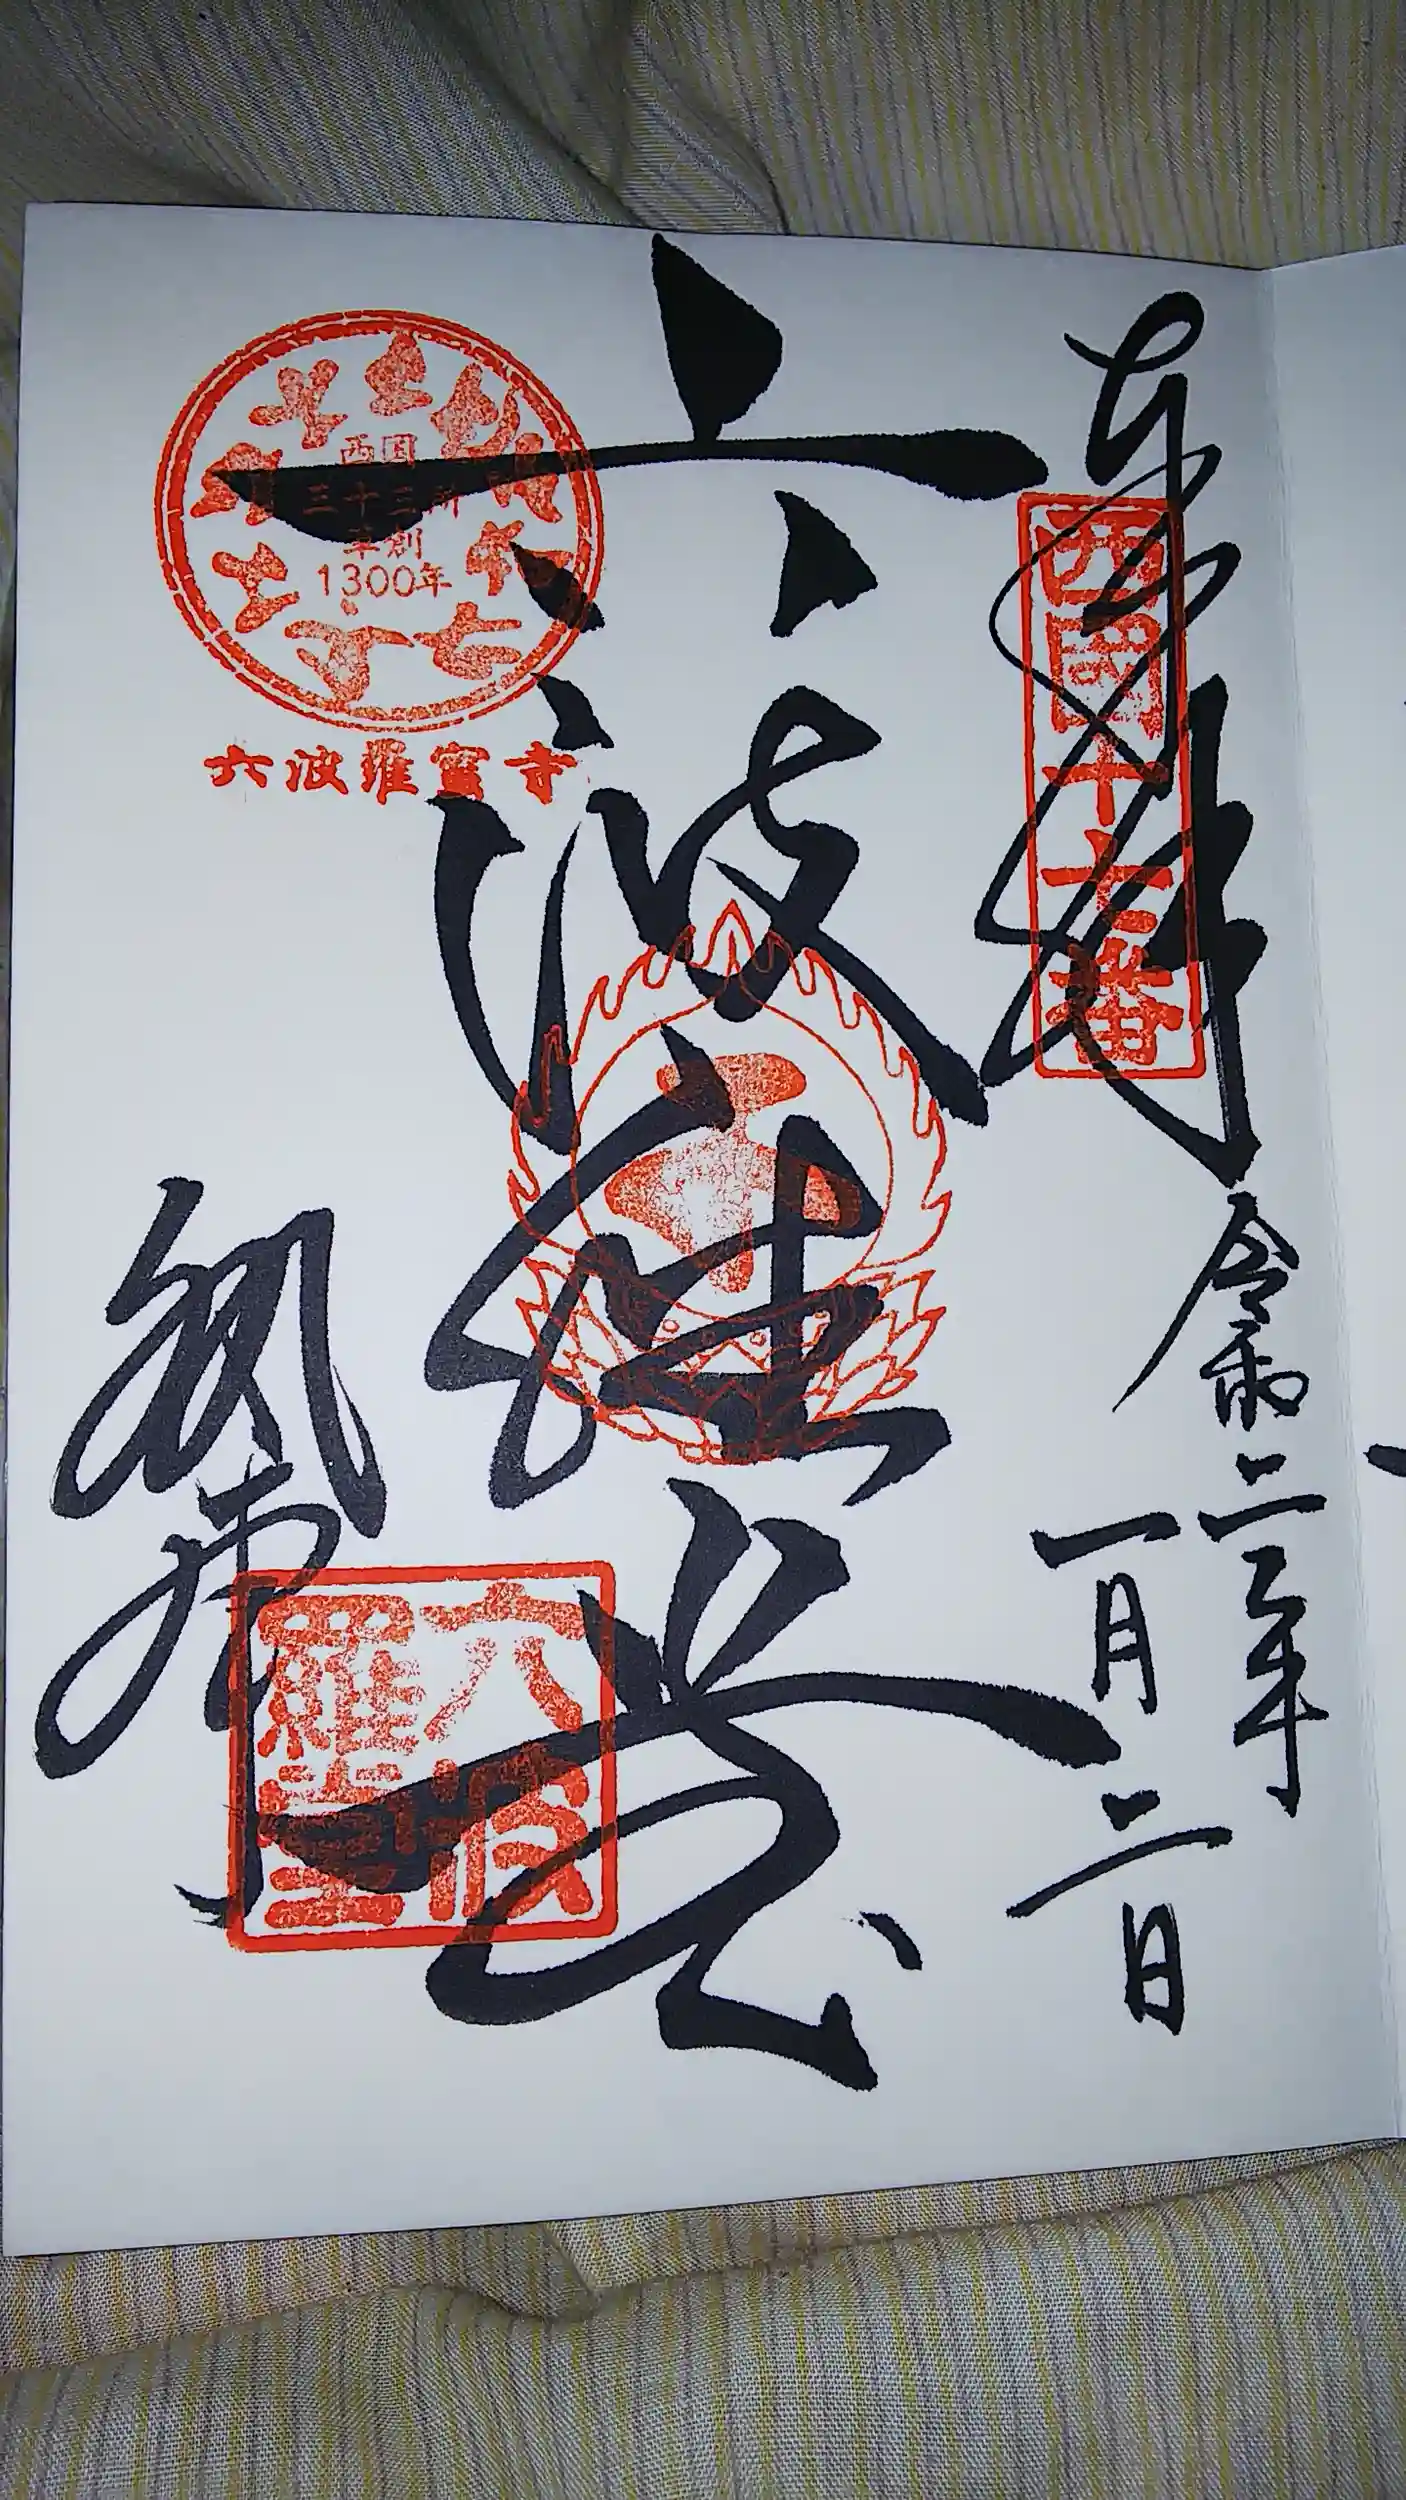 奉拝
西國十七番
令和二年
一月二日
六波羅堂
西国
三十三所
草創
1300年
六波羅蜜寺
六波
羅堂